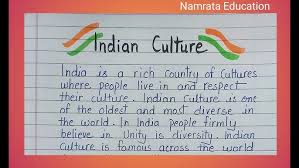 Namrata Education
Indian Culture
India is a rich country of cultures
where people live in and respect
their culture. Indian Culture is one
of the oldest and most diverse in
the world. In India people firmly
believe in Unity is diversity. Indian
Culture is famous across the world